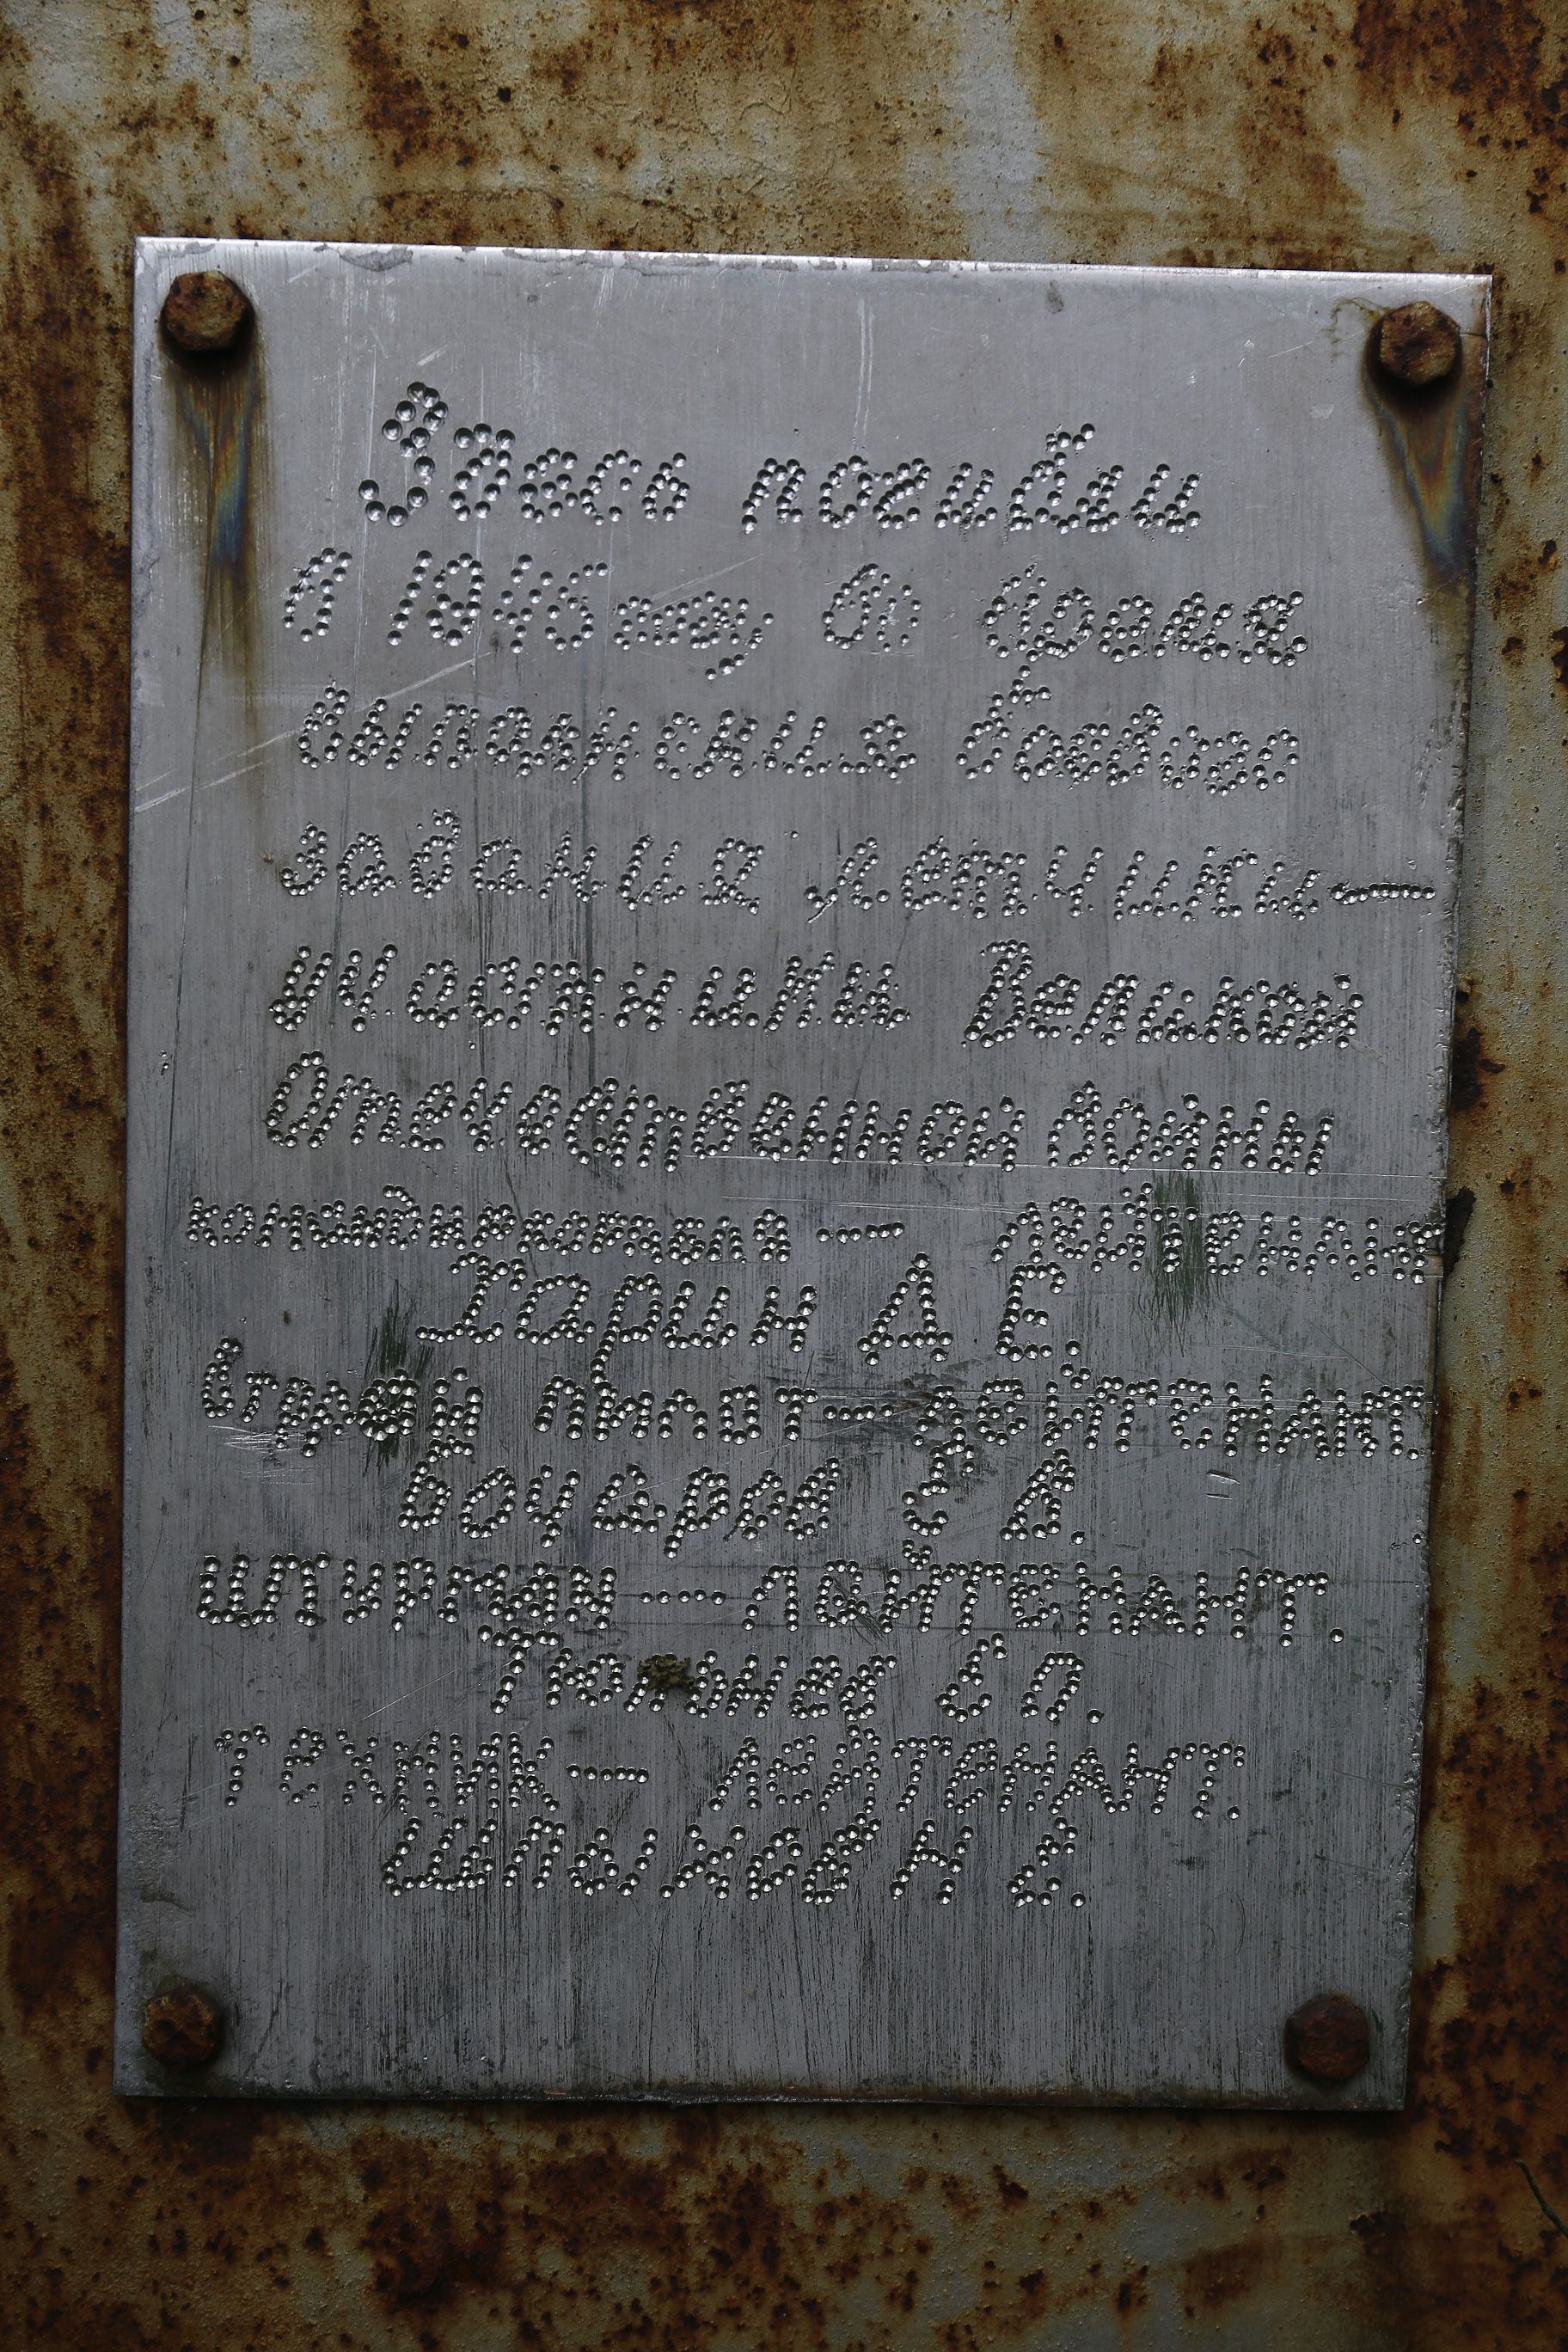 Здесь погибли
В 1945 году во время
выполнения боевого
задания летчики —
участники Великой
Отечественной Войны
командир — лейтенант
Зарин А Е.
второй пилот — лейтенант.
Бочаров С А.
штурман — лейтенант.
В П.
техник — лейтенант.
Шлыков Н Е.